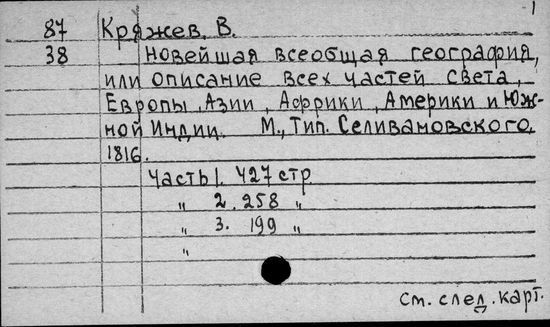 1
87 Кряжев, В.
38 Новейшая всеобщая география,
или описание всех частей света,
Европы, Азии, Африки, Америки и Юж-
ной Индии. М., Тип. Селивановского,
1816.
Часть 1. 427 стр.
„ 2. 258 „
„ 3. 199 „
„
См. след. карт.